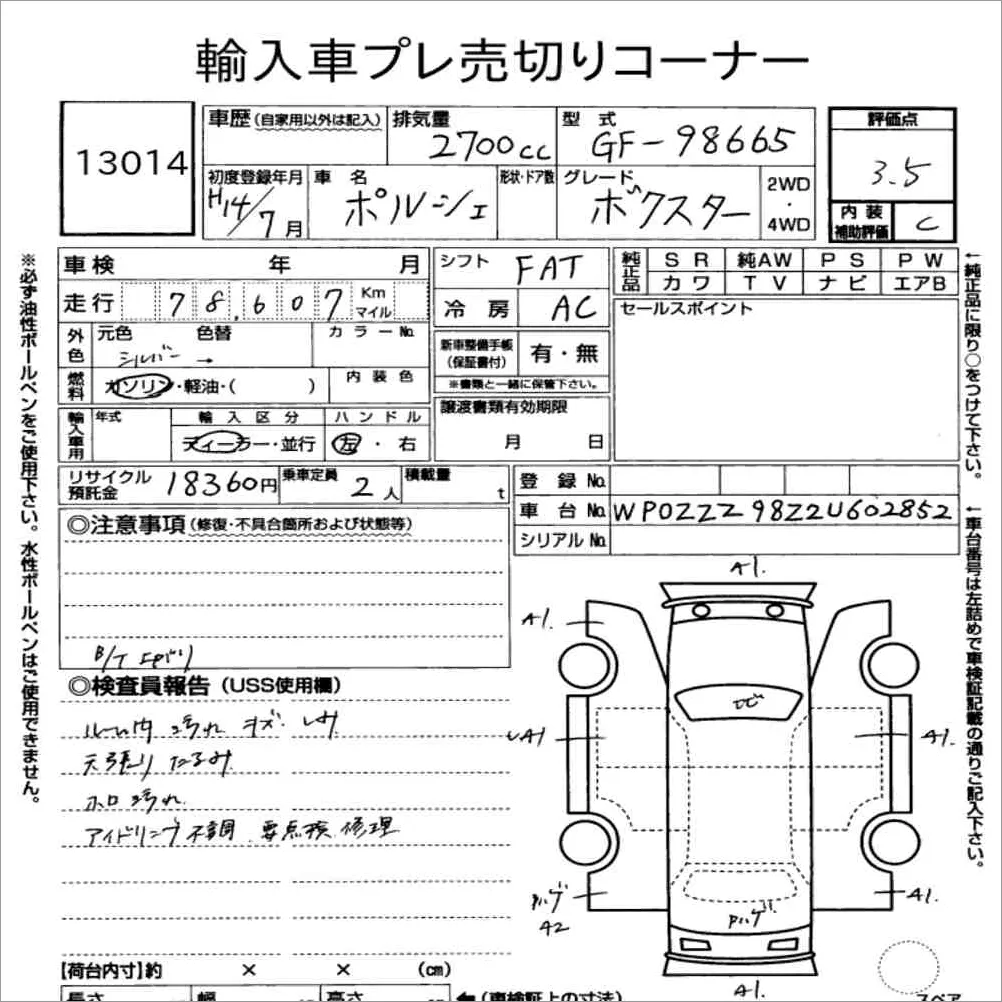 輸入車プレ売切りコーナー
13014
車歴 (自家用以外は記入)
排気量
2700cc
型式
GF-98665
評価点
3.5
初度登録年月
H14/7月
車名
ポルシェ
形状・ドア数
グレード
ボクスター
2WD
・
4WD
内装
補助評価
C
車検 年 月
走行 78,607 Km マイル
外色 元色 色替 カラーNo.
シルバー →
燃料 ガソリン・軽油・( )
内装色
輸入車用 年式 輸入区分 ハンドル
ディーラー・並行 左・右
シフト FAT
冷房 AC
新車整備手帳
(保証書付)
有・無
※書類と一緒に保管下さい。
譲渡書類有効期限
月 日
純正品 SR 純AW PS PW
カワ TV ナビ エアB
セールスポイント
リサイクル
預託金
18360円
乗車定員 2人
積載量 t
登録No.
車台No. WP0ZZZ98Z2U602852
シリアルNo.
◎注意事項 (修復・不具合箇所および状態等)
B/T
◎検査員報告 (USS使用欄)
ルーム内 汚れ キズ
天張り たるみ
ホロ 汚れ
アイドリング不調 要点検 修理
【荷台内寸】約 × × (cm)
長さ 幅 高さ
(車検証上の寸法)
スペア
A1.
A1.
トビ
A1
A1.
ハゲ
A2
ハゲ
A1.
A1.
※必ず油性ボールペンをご使用下さい。水性ボールペンはご使用できません。
←純正品に限り○をつけて下さい。
←車台番号は左詰めで車検証記載の通りご記入下さい。